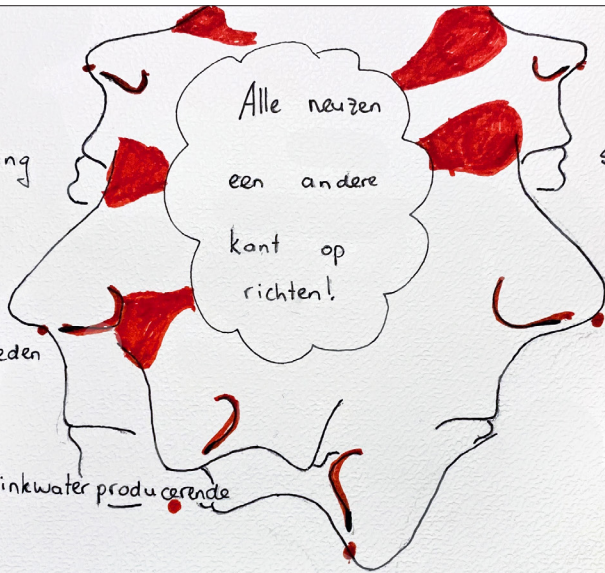 Alle neuzen
een andere
kant op
richten!
ng
eden
inkwater producerende